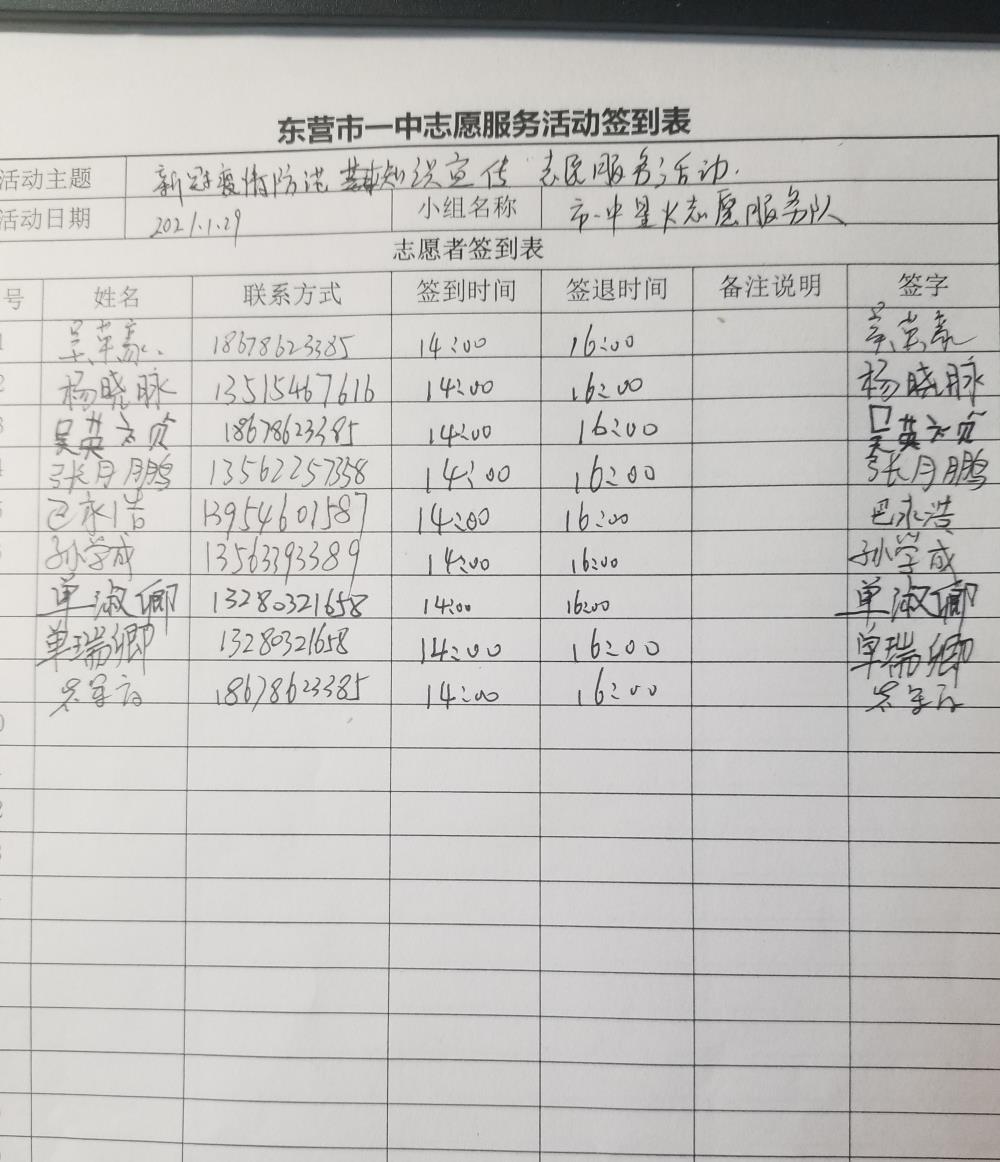 东营市一中志愿服务活动签到表
活动主题 新冠疫情防范基本知识宣传 志愿服务活动.
活动日期 2021.1.29 小组名称 市一中星火志愿服务队
志愿者签到表
号 姓名 联系方式 签到时间 签退时间 备注说明 签字
吴荣豪 18678623385 14:00 16:00 吴荣豪
杨晓脉 13515467616 14:00 16:00 杨晓脉
吴英 18678623385 14:00 16:00 吴英
张月鹏 13562257358 14:00 16:00 张月鹏
巴永浩 13954601587 14:00 16:00 巴永浩
孙学成 13563393389 14:00 16:00 孙学成
单淑卿 13280321658 14:00 16:00 单淑卿
单瑞卿 13280321658 14:00 16:00 单瑞卿
18678623385 14:00 16:00